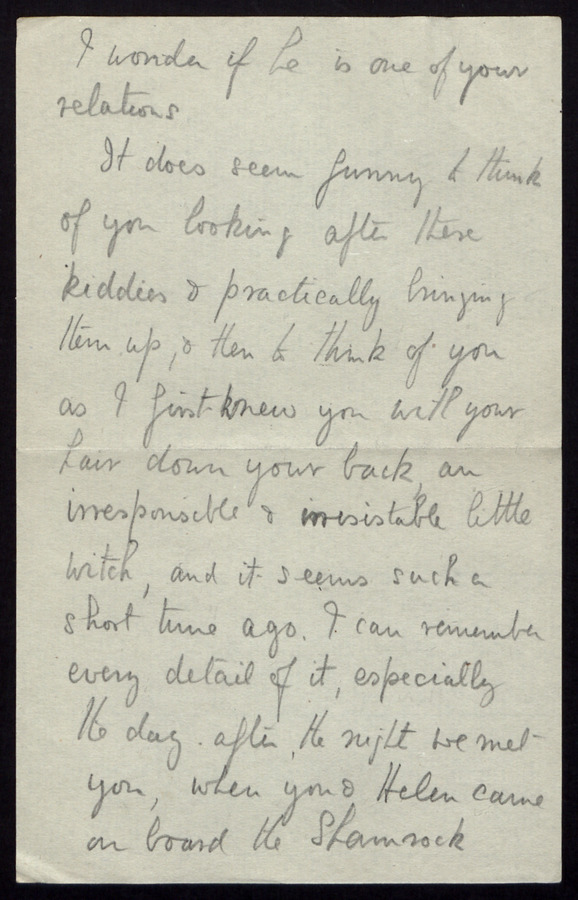 I wonder if he is one of your
relations
It does seem funny to think
of you looking after these
kiddies & practically bringing
them up, & then to think of you
as I first knew you with your
hair down your back, an
irresponsible & irresistable little
witch, and it seems such a
short time ago. I can remember
every detail of it, especially
the day after, the night we met
you, when you & Helen came
on board the Shamrock